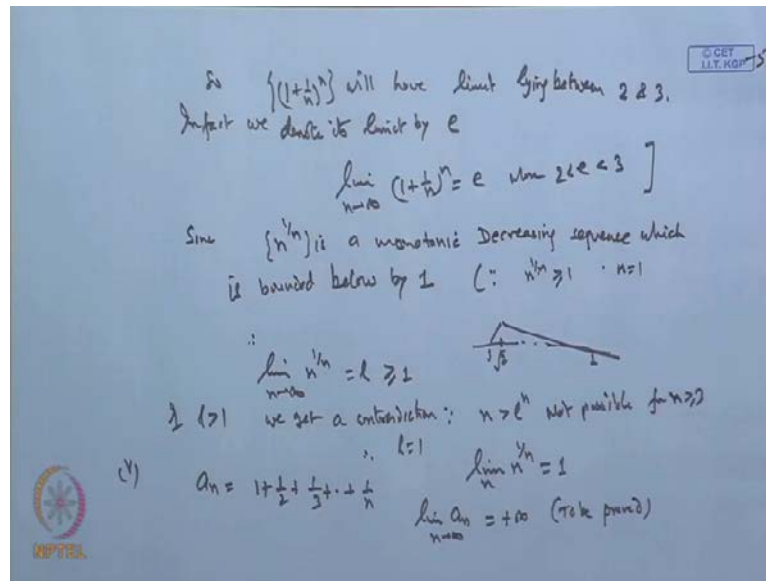 © CET
I.I.T. KGP
So {(1+1/n)^n} will have limit lying between 2 & 3.
Infact we denote its limit by e
lim n→∞ (1+1/n)^n = e when 2<e<3 ]
Since {n^{1/n}} is a monotonic Decreasing sequence which
is bounded below by 1 (∵ n^{1/n} ≥ 1 · n=1
∴ lim n→∞ n^{1/n} = l ≥ 1
If l>1 we get a contradiction ∵ n > l^n Not possible for n≥3
∴ l=1 lim n n^{1/n} = 1
(v) a_n = 1+1/2+1/3+··+1/n
lim n→∞ a_n = +∞ (To be proved)
NPTEL